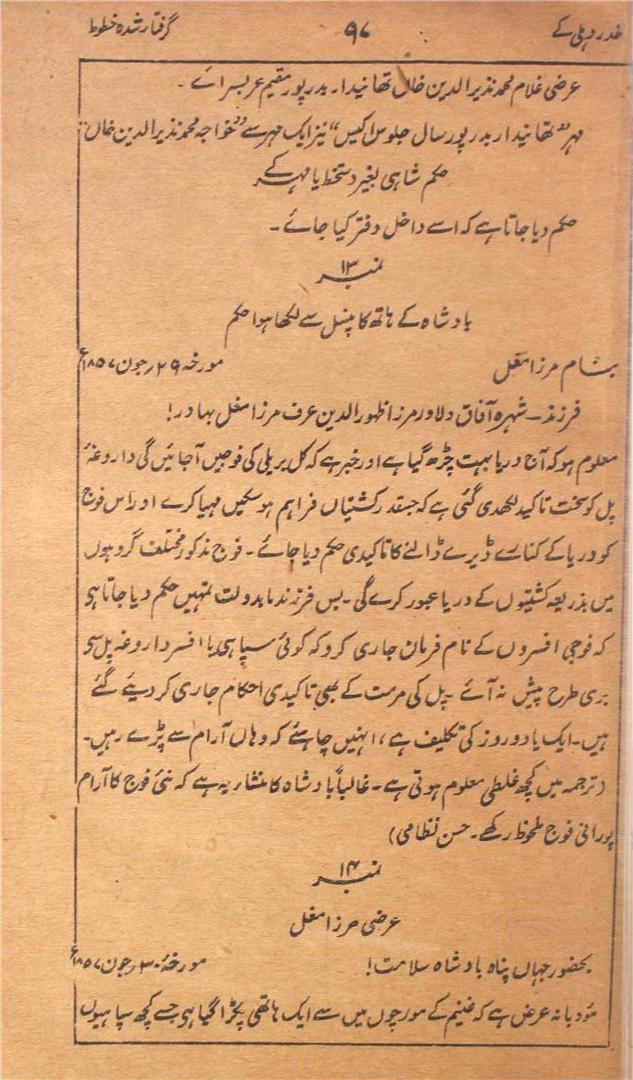 غدر دہلی کے ۹۷ گرفتار شدہ خطوط
عرضی غلام محمد نذیر الدین خاں تھانیدار۔ بدر پور مقیم عربسرائے۔
مہر "تھانیدار بدر پور سال جلوس اکیس" نیز ایک مہر سے "خواجہ محمد نذیر الدین خاں"
حکم شاہی بغیر دستخط یا مہر کے
حکم دیا جاتا ہے کہ اسے داخل دفتر کیا جائے۔
نمبر ۱۳
بادشاہ کے ہاتھ کا پنسل سے لکھا ہوا حکم
بنام مرزا مغل مورخہ ۲۹ جون ۱۸۵۷ء
فرزند۔ شہرہ آفاق دلاور مرزا ظہور الدین عرف مرزا مغل بہادر!
معلوم ہو کہ آج دریا بہت چڑھ گیا ہے اور خبر ہے کہ کل بریلی کی فوجیں آجائیں گی داروغۂ
پل کو سخت تاکید لکھدی گئی ہے کہ جسقدر کشتیاں فراہم ہوسکیں مہیا کرے اور اس فوج
کو دریا کے کنارے ڈیرے ڈالنے کا تاکیدی حکم دیا جائے۔ فوج مذکور مختلف گروہوں
میں بذریعہ کشتیوں کے دریا عبور کرے گی۔ بس فرزند مابدولت تمہیں حکم دیا جاتا ہی
کہ فوجی افسروں کے نام فرمان جاری کرو کہ کوئی سپاہی یا افسر داروغہ پل سی
بری طرح پیش نہ آئے۔ پل کی مرمت کے بھی تاکیدی احکام جاری کر دیئے گئے
ہیں۔ ایک یا دو روز کی تکلیف ہے، انہیں چاہئے کہ وہاں آرام سے پڑے رہیں۔
(ترجمہ میں کچھ غلطی معلوم ہوتی ہے۔ غالباً بادشاہ کا منشا یہ ہے کہ نئی فوج کا آرام
پورانی فوج ملحوظ رکھے۔ حسن نظامی)
نمبر ۱۴
عرضی مرزا مغل
بحضور جہاں پناہ بادشاہ سلامت! مورخۂ ۳۰ جون ۱۸۵۷ء
مؤدبانہ عرض ہے کہ غنیم کے مورچوں میں سے ایک ہاتھی پکڑا گیا ہی جسے کچھ سپاہیوں